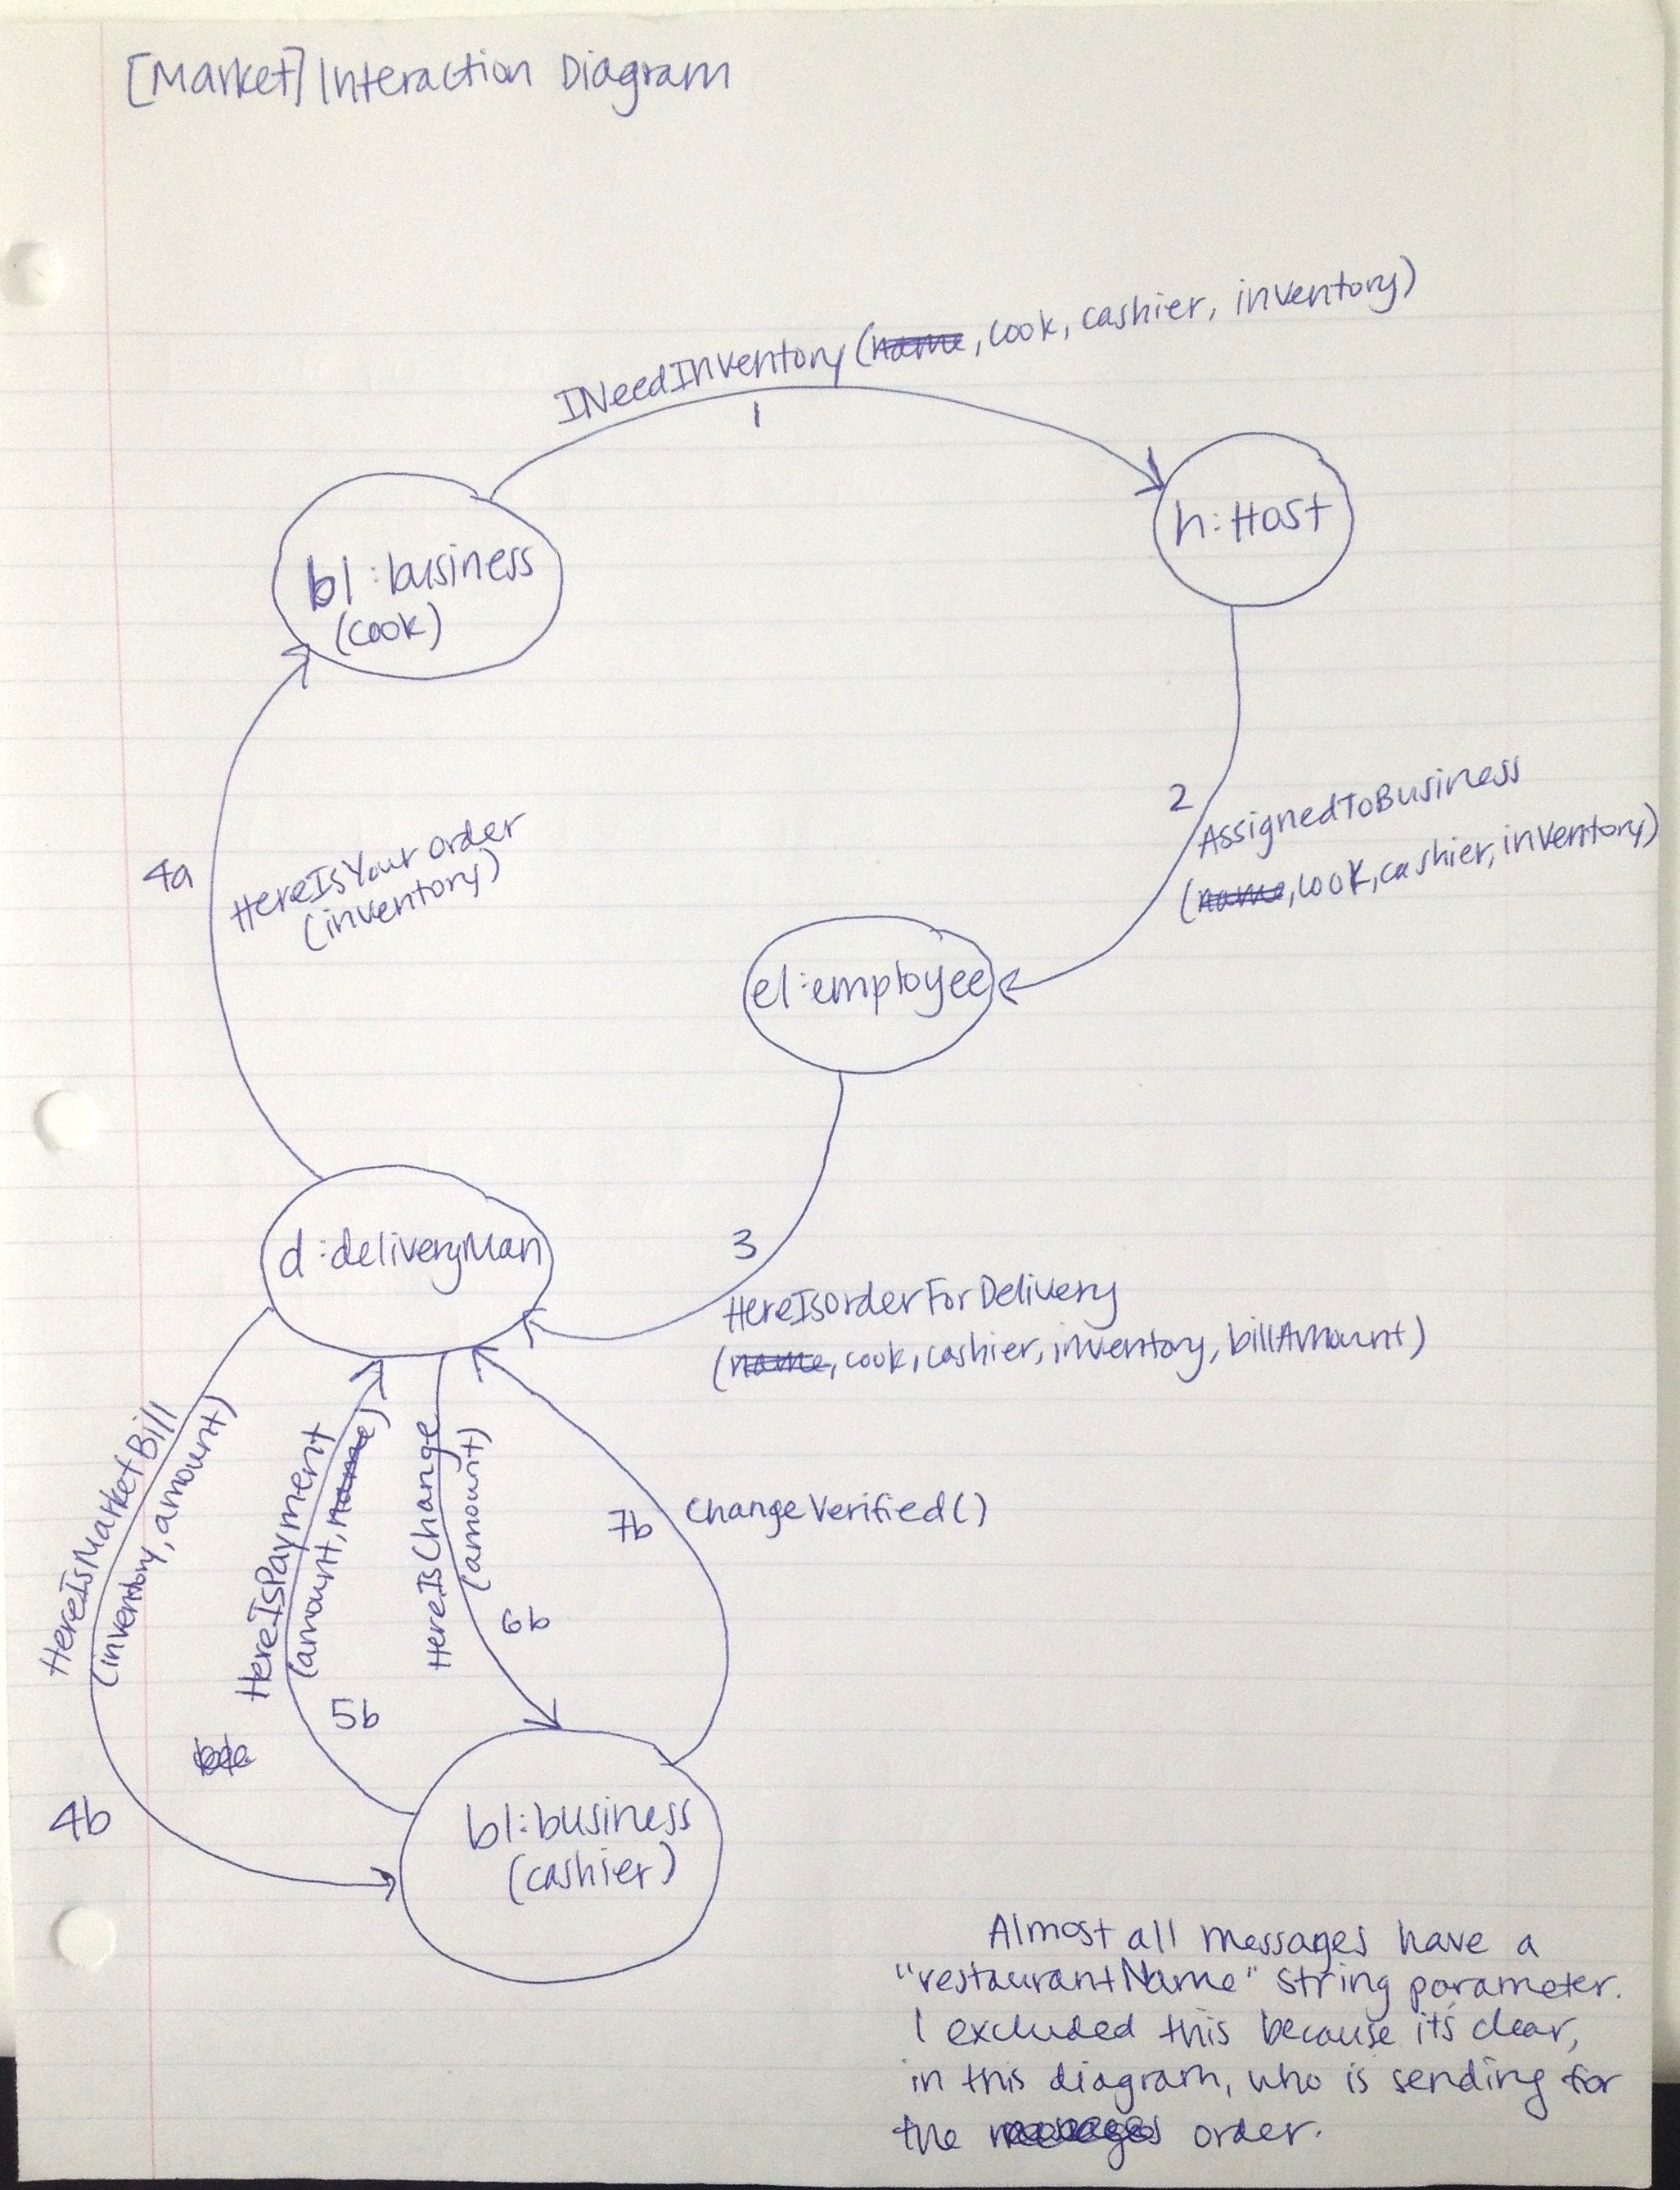 [Market] Interaction Diagram
INeedInventory (name, cook, cashier, inventory)
1
h: Host
b1: business
(cook)
2
AssignedToBusiness
(name, cook, cashier, inventory)
4a
HereIsYourOrder
(inventory)
e1: employee
d: deliveryMan
3
HereIsOrderForDelivery
(name, cook, cashier, inventory, billAmount)
HereIsMarketBill
(inventory, amount)
4b
HereIsPayment
(amount, name)
5b
HereIsChange
(amount)
6b
7b
ChangeVerified()
b1: business
(cashier)
Almost all messages have a
"restaurantName" string parameter.
I excluded this because it's clear,
in this diagram, who is sending for
the order.